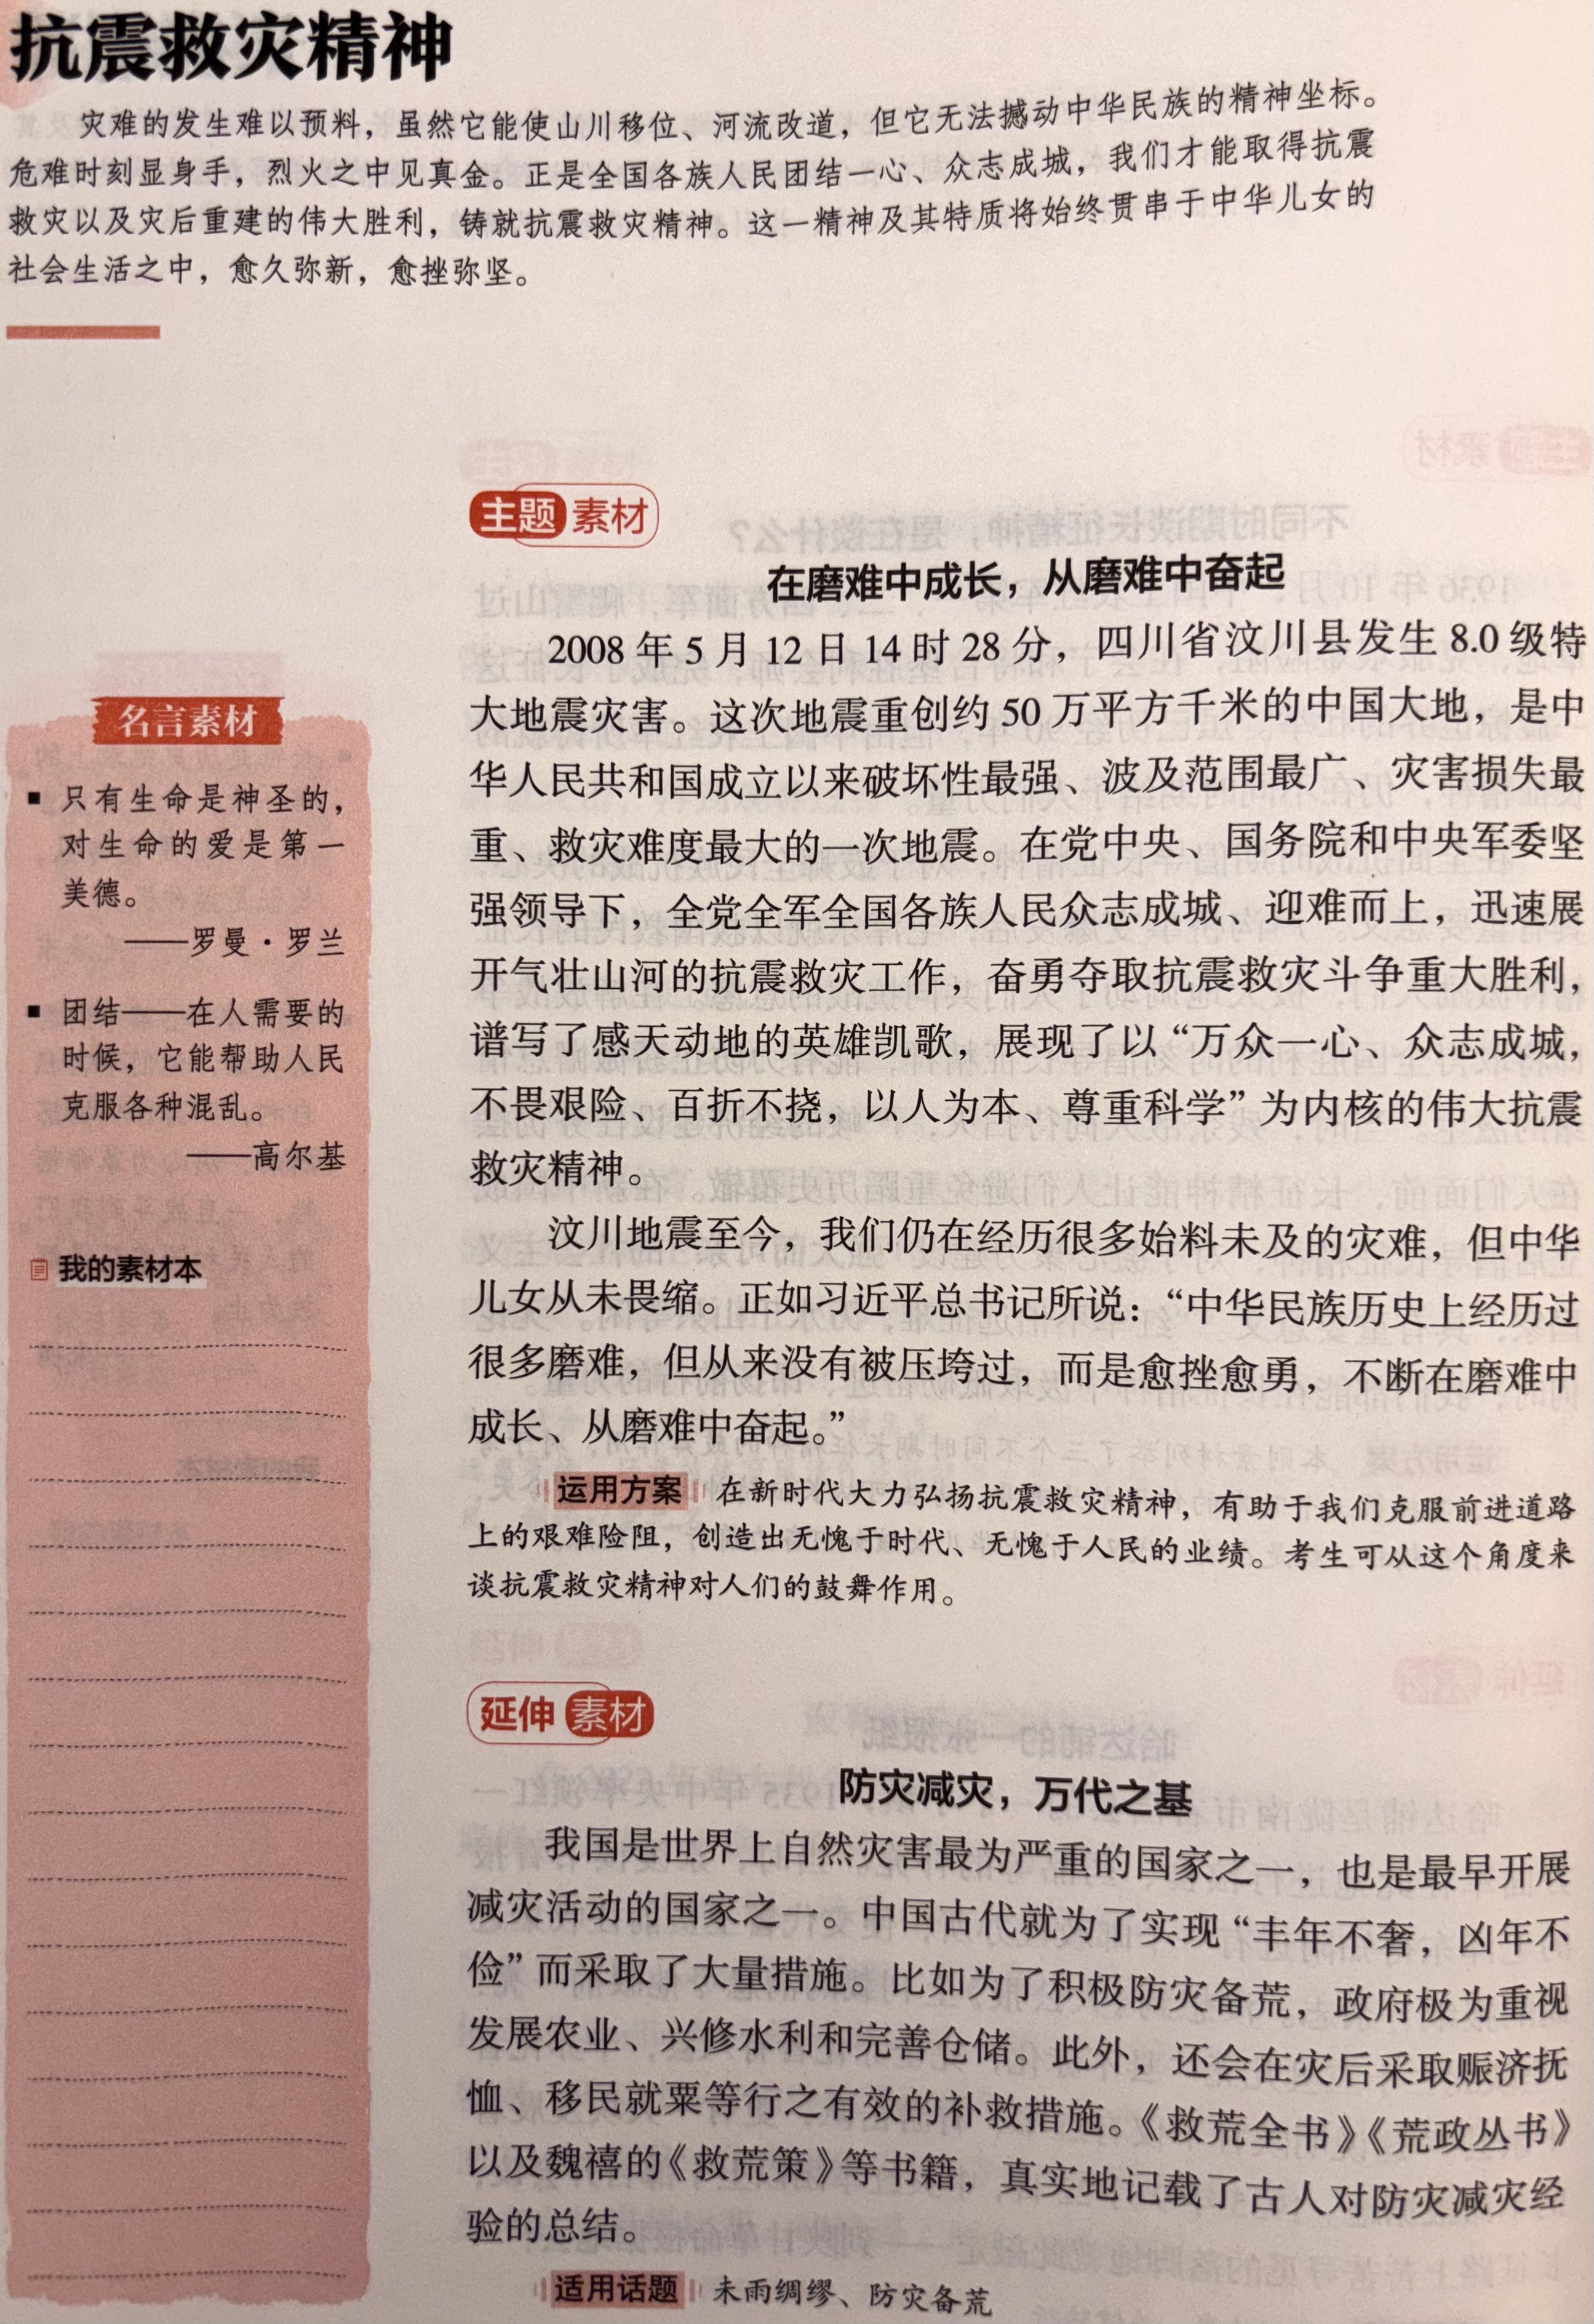 抗震救灾精神
灾难的发生难以预料，虽然它能使山川移位、河流改道，但它无法撼动中华民族的精神坐标。
危难时刻显身手，烈火之中见真金。正是全国各族人民团结一心、众志成城，我们才能取得抗震
救灾以及灾后重建的伟大胜利，铸就抗震救灾精神。这一精神及其特质将始终贯串于中华儿女的
社会生活之中，愈久弥新，愈挫弥坚。
主题素材
在磨难中成长，从磨难中奋起
2008年5月12日14时28分，四川省汶川县发生8.0级特
大地震灾害。这次地震重创约50万平方千米的中国大地，是中
华人民共和国成立以来破坏性最强、波及范围最广、灾害损失最
重、救灾难度最大的一次地震。在党中央、国务院和中央军委坚
强领导下，全党全军全国各族人民众志成城、迎难而上，迅速展
开气壮山河的抗震救灾工作，奋勇夺取抗震救灾斗争重大胜利，
谱写了感天动地的英雄凯歌，展现了以“万众一心、众志成城，
不畏艰险、百折不挠，以人为本、尊重科学”为内核的伟大抗震
救灾精神。
汶川地震至今，我们仍在经历很多始料未及的灾难，但中华
儿女从未畏缩。正如习近平总书记所说：“中华民族历史上经历过
很多磨难，但从来没有被压垮过，而是愈挫愈勇，不断在磨难中
成长、从磨难中奋起。”
运用方案 在新时代大力弘扬抗震救灾精神，有助于我们克服前进道路
上的艰难险阻，创造出无愧于时代、无愧于人民的业绩。考生可从这个角度来
谈抗震救灾精神对人们的鼓舞作用。
延伸素材
防灾减灾，万代之基
我国是世界上自然灾害最为严重的国家之一，也是最早开展
减灾活动的国家之一。中国古代就为了实现“丰年不奢，凶年不
俭”而采取了大量措施。比如为了积极防灾备荒，政府极为重视
发展农业、兴修水利和完善仓储。此外，还会在灾后采取赈济抚
恤、移民就粟等行之有效的补救措施。《救荒全书》《荒政丛书》
以及魏禧的《救荒策》等书籍，真实地记载了古人对防灾减灾经
验的总结。
适用话题 未雨绸缪、防灾备荒
名言素材
■ 只有生命是神圣的，
对生命的爱是第一
美德。
——罗曼·罗兰
■ 团结——在人需要的
时候，它能帮助人民
克服各种混乱。
——高尔基
我的素材本